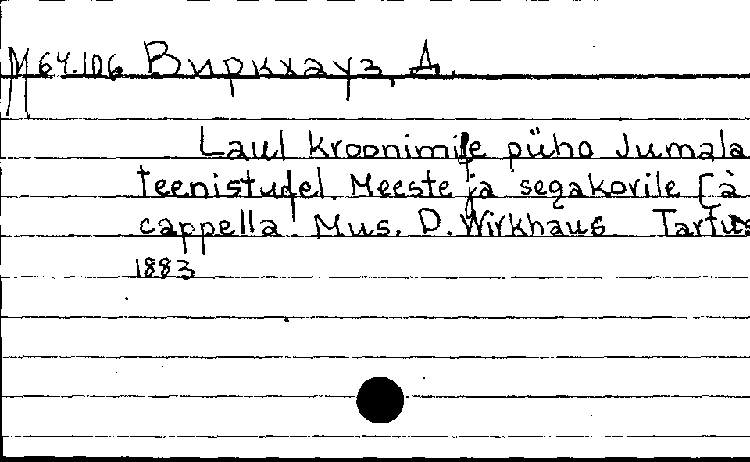 M 64.106 Виркхауз, Д.
Laul kroonimite püha Jumala
teenistudel. Meeste ja segakorile [à
cappella]. Mus. D. Wirkhaus. Tartus
1883